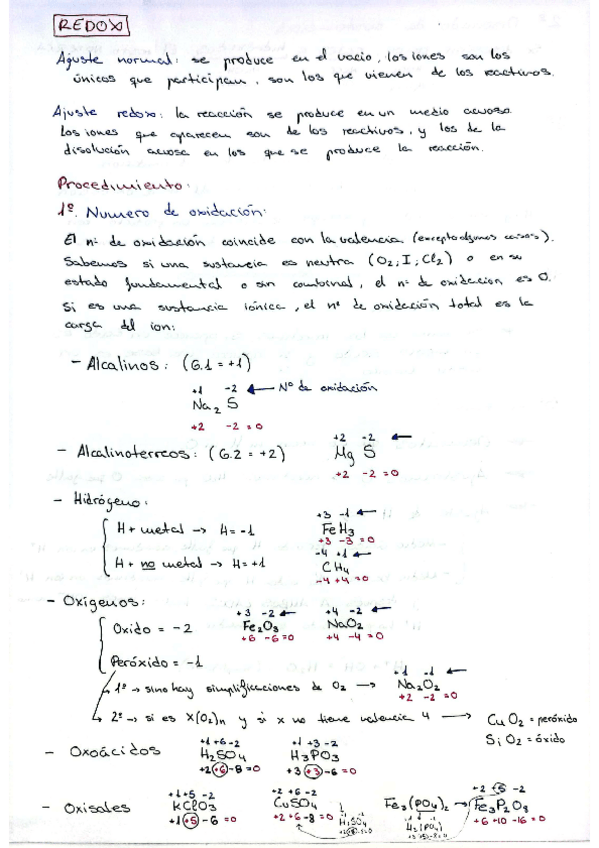 REDOX
Ajuste normal: se produce en el vacio, los iones son los
únicos que participan, son los que vienen de los reactivos.
Ajuste redox: la reacción se produce en un medio acuoso
Los iones que aparecen son de los reactivos, y los de la
disolución acuosa en los que se produce la reacción.
Procedimiento:
1º. Numero de oxidación:
El nº de oxidación coincide con la valencia (excepto algunos casos).
Sabemos si una sustancia es neutra (O2; I; Cl2) o en su
estado fundamental o sin combinal, el nº de oxidacion es 0.
Si es una sustancia iónica, el nº de oxidación total es la
carga del ion:
- Alcalinos: (G.1 = +1)
+1 -2 ← Nº de oxidación
Na2 S
+2 -2 = 0
- Alcalinoterreos: (G.2 = +2)
+2 -2 ←
Mg S
+2 -2 = 0
- Hidrógeno:
+3 -1 ←
H + metal → H = -1 FeH3
+3 -3 = 0
-4 +1 ←
H + no metal → H = +1 CH4
-4 +4 = 0
- Oxígenos:
+3 -2 ← +4 -2 ←
Oxido = -2 Fe2O3 NaO2
+6 -6 = 0 +4 -4 = 0
Peróxido = -1
+1 -1 ←
1º → sino hay simplificaciones de O2 → Na2O2
+2 -2 = 0
2º → si es X(O2)n y si x no tiene valencia 4 → CuO2 = peróxido
SiO2 = óxido
- Oxoácidos
+1 +6 -2 +1 +3 -2
H2SO4 H3PO3
+2 +6 -8 = 0 +3 +3 -6 = 0
- Oxisales
+1 +5 -2 +2 +6 -2 +2 +5 -2
KClO3 CuSO4 Fe3(PO4)2 → Fe3P2O8
+1 +5 -6 = 0 +2 +6 -8 = 0 H2SO4 H3(PO4) +6 +10 -16 = 0